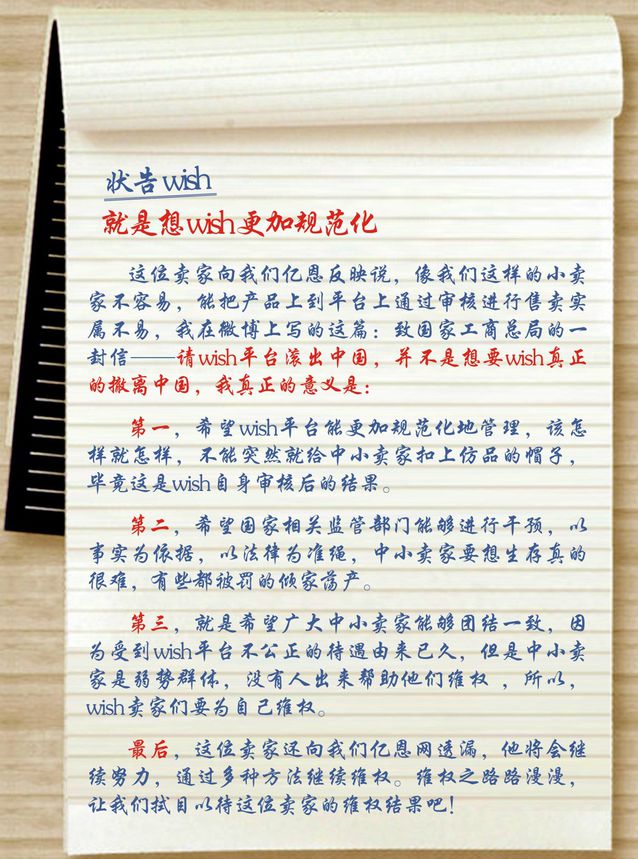 状告wish
就是想wish更加规范化
这位卖家向我们亿恩反映说，像我们这样的小卖
家不容易，能把产品上到平台上通过审核进行售卖实
属不易，我在微博上写的这篇：致国家工商总局的一
封信——请wish平台滚出中国，并不是想要wish真正
的撤离中国，我真正的意义是：
第一，希望wish平台能更加规范化地管理，该怎
样就怎样，不能突然就给中小卖家扣上仿品的帽子，
毕竟这是wish自身审核后的结果。
第二，希望国家相关监管部门能够进行干预，以
事实为依据，以法律为准绳，中小卖家要想生存真的
很难，有些都被罚的倾家荡产。
第三，就是希望广大中小卖家能够团结一致，因
为受到wish平台不公正的待遇由来已久，但是中小卖
家是弱势群体，没有人出来帮助他们维权，所以，
wish卖家们要为自己维权。
最后，这位卖家还向我们亿恩网透漏，他将会继
续努力，通过多种方法继续维权。维权之路路漫漫，
让我们拭目以待这位卖家的维权结果吧！